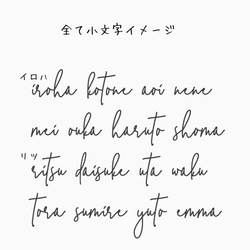 全て小文字イメージ
イロハ
iroha kotone aoi nene
mei ouka haruto shoma
リツ
ritsu daisuke uta waku
tora sumire yuto emma